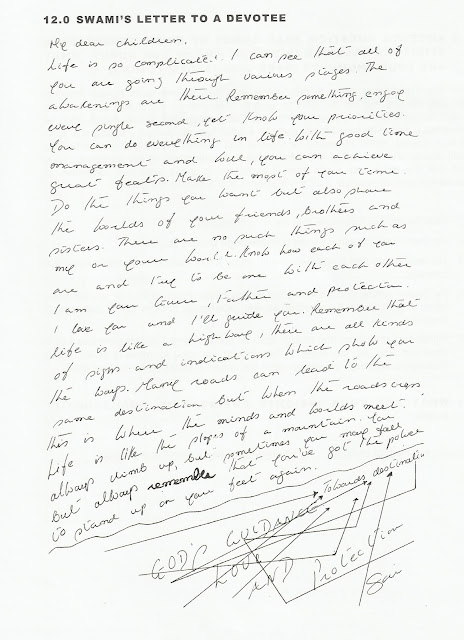 12.0 SWAMI'S LETTER TO A DEVOTEE
My dear children,
Life is so complicate... I can see that all of
you are going through various stages. The
awakenings are there. Remember something, enjoy
every single second, yet know your priorities.
You can do everything in life. With good time
management and will, you can achieve
great feats. Make the most of your time.
Do the things you want but also share
the worlds of your friends, brothers and
sisters. There are no such things such as
my or your world. Know how each of you
are and try to be one with each other
I am your Father and protector.
I love you and I'll guide you. Remember that
life is like a highway, there are all kinds
of signs and indications which show you
the ways. Many roads can lead to the
same destination but when the roads cross
this is where the minds and worlds meet.
Life is like the slopes of a mountain. You
always climb up, but sometimes you may fall
but always remember that you've got the power
to stand up on your feet again.
Towards destination
GOD'S GUIDANCE
LOVE
AND
Protection
Sai